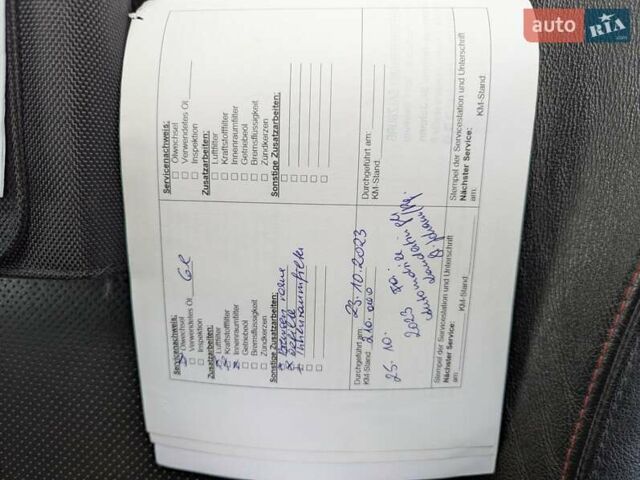 auto RIA.com
Servicenachweis:
Ölwechsel
Verwendetes Öl 6l
Inspektion
Zusatzarbeiten:
Luftfilter
Kraftstofffilter
Innenraumfilter
Getriebeöl
Bremsflüssigkeit
Zündkerzen
Sonstige Zusatzarbeiten:
Durchgeführt am: 23.10.2023
KM-Stand: 210.000
25. 10. 2023
Stempel der Servicestation und Unterschrift
Nächster Service:
am: KM-Stand:
Servicenachweis:
Ölwechsel
Verwendetes Öl
Inspektion
Zusatzarbeiten:
Luftfilter
Kraftstofffilter
Innenraumfilter
Getriebeöl
Bremsflüssigkeit
Zündkerzen
Sonstige Zusatzarbeiten:
Durchgeführt am:
KM-Stand:
Stempel der Servicestation und Unterschrift
Nächster Service:
am: KM-Stand: